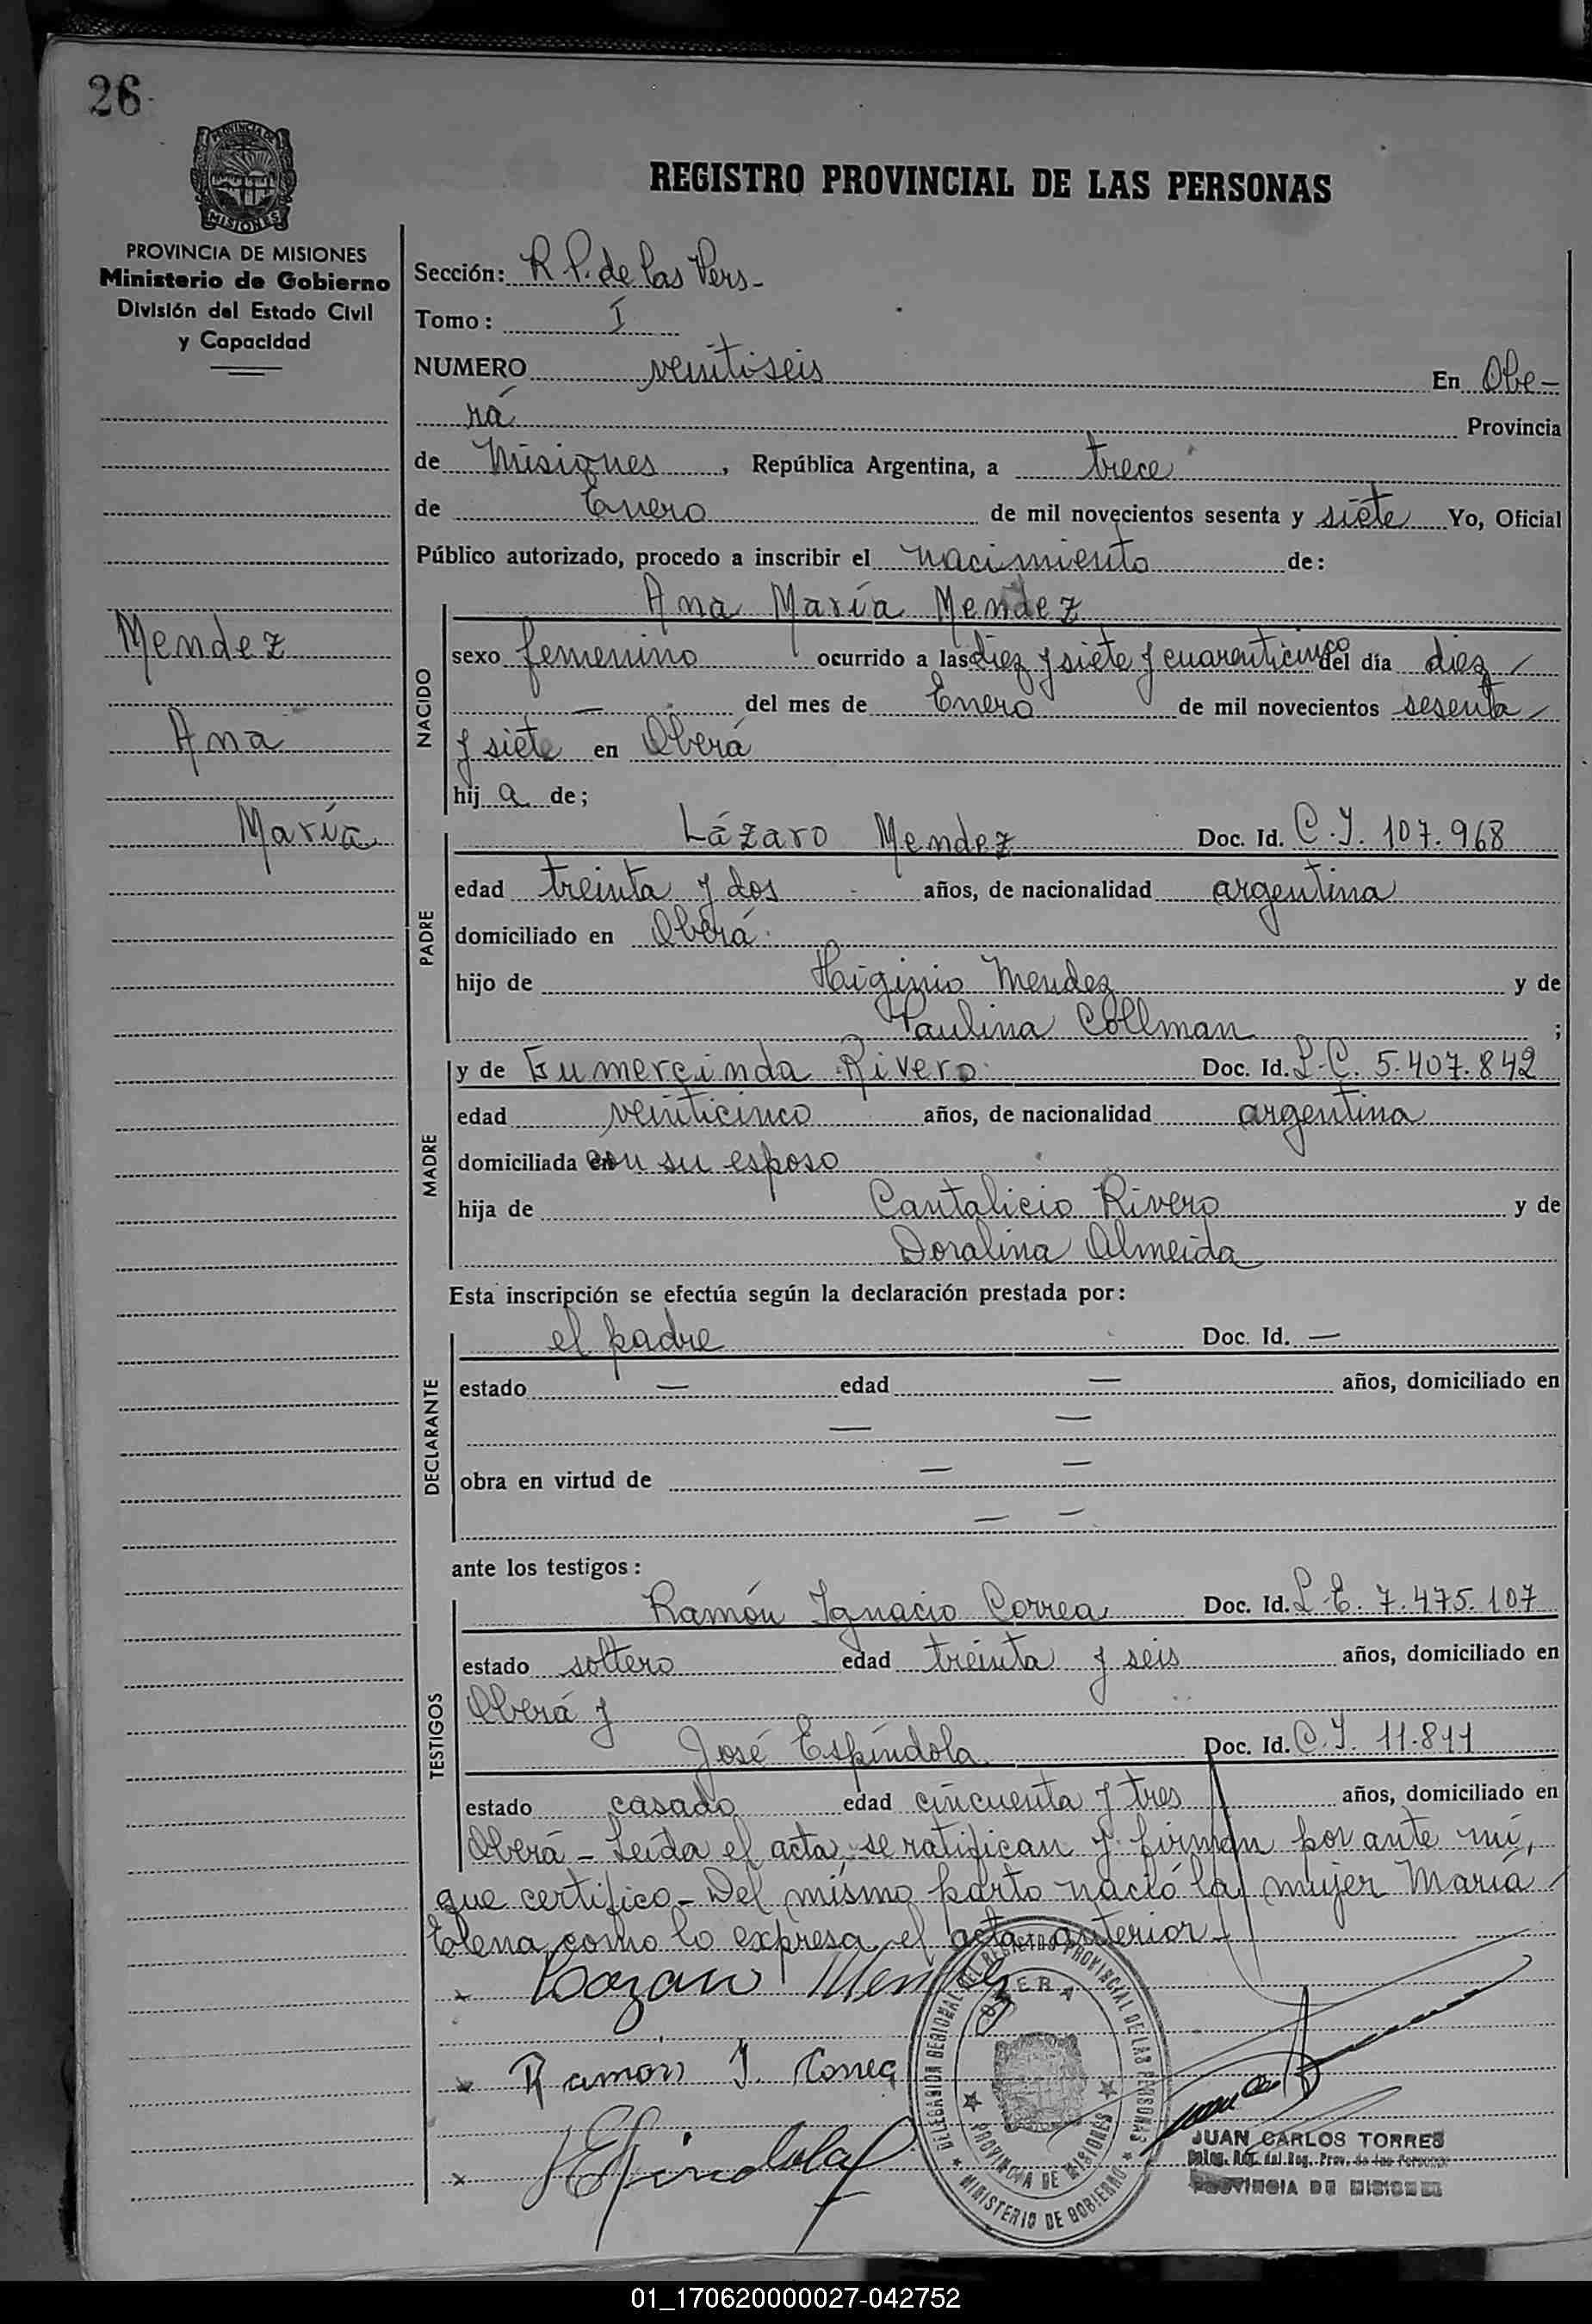 26
PROVINCIA DE
MISIONES
REGISTRO PROVINCIAL DE LAS PERSONAS
PROVINCIA DE MISIONES
Ministerio de Gobierno
División del Estado Civil
y Capacidad
Sección: R P. de las Pers-
Tomo: I
NUMERO veintiseis En Obe-
rá Provincia
de Misiones, República Argentina, a trece
de Enero de mil novecientos sesenta y siete Yo, Oficial
Público autorizado, procedo a inscribir el nacimiento de:
Mendez
Ana
María
NACIDO
Ana María Mendez
sexo femenino ocurrido a las diez y siete y cuarenticinco del día diez
— del mes de Enero de mil novecientos sesenta
y siete en Oberá
hij a de;
PADRE
Lázaro Mendez Doc. Id. C.I. 107.968
edad treinta y dos años, de nacionalidad argentina
domiciliado en Oberá
hijo de Higinio Mendez y de
Paulina Collman ;
MADRE
y de Gumercinda Rivero Doc. Id. L.C. 5.407.842
edad veinticinco años, de nacionalidad argentina
domiciliada con su esposo
hija de Cantalicio Rivero y de
Doralina Almeida
Esta inscripción se efectúa según la declaración prestada por:
DECLARANTE
el padre Doc. Id. —
estado — edad — años, domiciliado en
— —
obra en virtud de — —
— —
ante los testigos:
TESTIGOS
Ramón Ignacio Correa Doc. Id. L.E. 7.475.107
estado soltero edad treinta y seis años, domiciliado en
Oberá y
José Espíndola Doc. Id. C.I. 11.811
estado casado edad cincuenta y tres años, domiciliado en
Oberá - Leída el acta, se ratifican y firman por ante mí,
que certifico - Del mismo parto nació la mujer María
Elena, como lo expresa el acta anterior -
x Lazaro Mendez
x Ramon I. Correa
x J Espindola
DELEGACION REGIONAL DEL REGISTRO PROVINCIAL DE LAS PERSONAS
OBERA
PROVINCIA DE MISIONES
MINISTERIO DE GOBIERNO
JUAN CARLOS TORRES
Reg. del Reg. Prov. de las Personas
PROVINCIA DE MISIONES
01_170620000027-042752